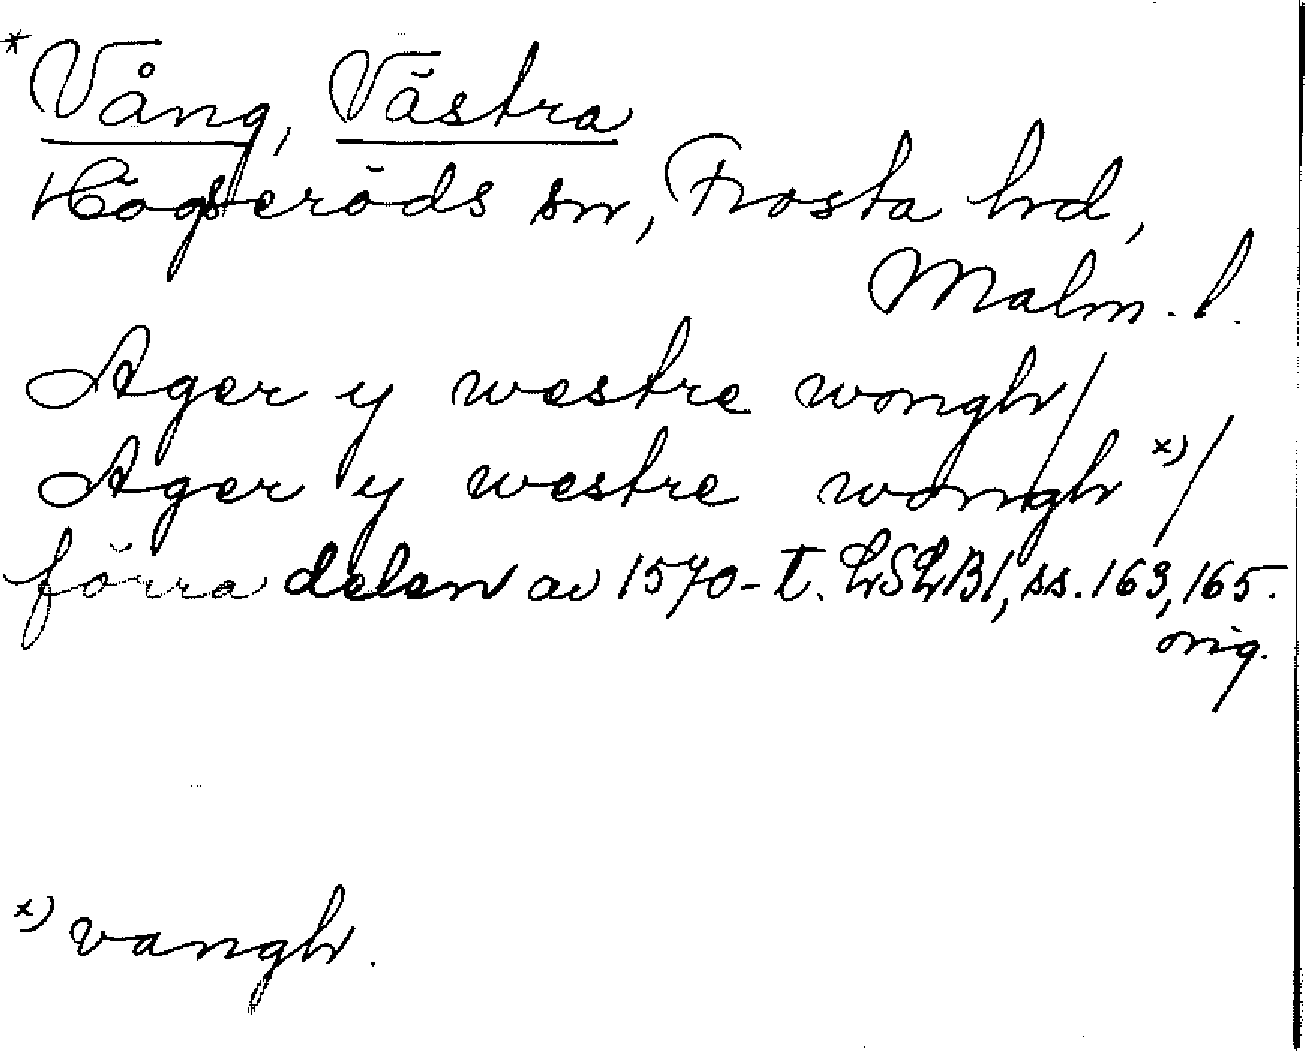 * Vång, Västra
Högseröds sn, Frosta hrd,
Malm. l.
Ager y westre wongh/
Ager y westre wongh x)/
förra delen av 1570-t. LSLB1, ss. 163, 165.
orig.
x) vangh.